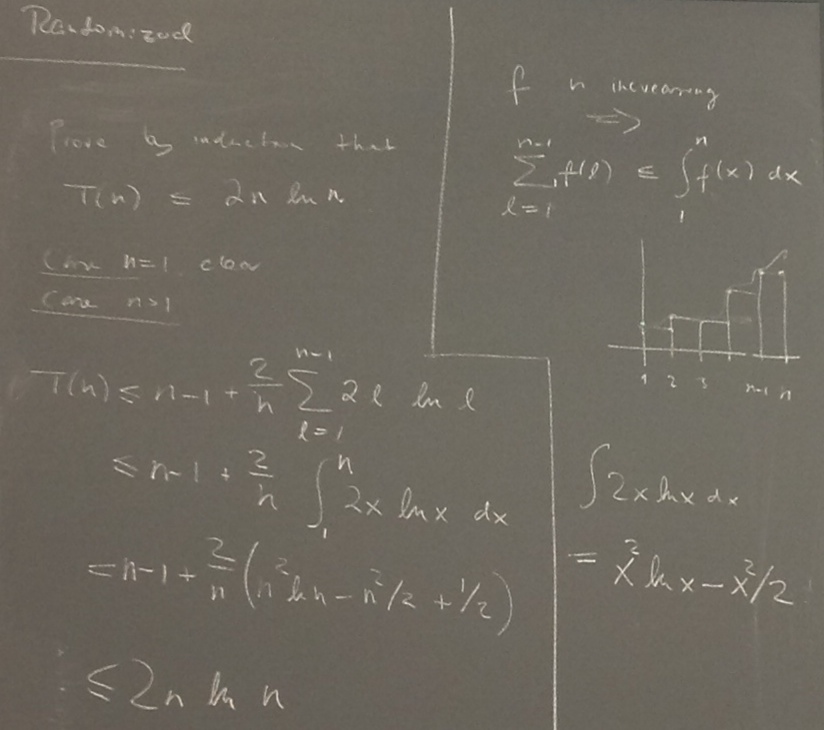 Randomized
Prove by induction that
T(n) ≤ 2n ln n
Case n=1 clear
Case n>1
T(n) ≤ n-1 + 2/n ∑_{l=1}^{n-1} 2l ln l
≤ n-1 + 2/n ∫_1^n 2x ln x dx
= n-1 + 2/n (n² ln n - n²/2 + 1/2)
≤ 2n ln n
f increasing
⇒
∑_{l=1}^{n-1} f(l) ≤ ∫_1^n f(x) dx
1 2 3 n-1 n
∫2x ln x dx
= x² ln x - x²/2